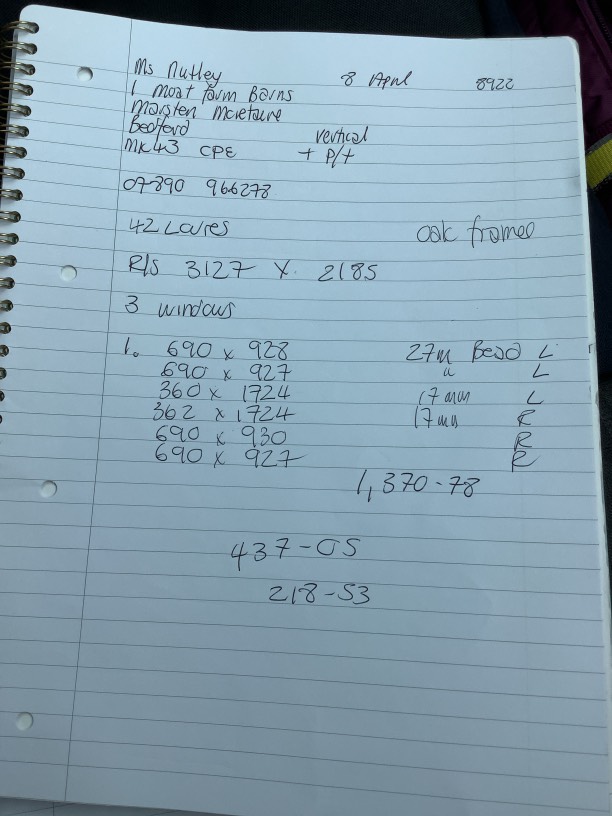 Ms Nutley 8 April 8922
1 Moat farm Barns
Marsten Moretaire
Bedford vertical
MK43 CPE + P/t
07890 966278
42 Lovres oak framed
R/S 3127 X 2185
3 windows
1. 690 x 928 27m Bead L
690 x 927 " L
360 x 1724 17mm L
362 x 1724 17mm R
690 x 930 R
690 x 927 R
1,370-78
437-05
218-53